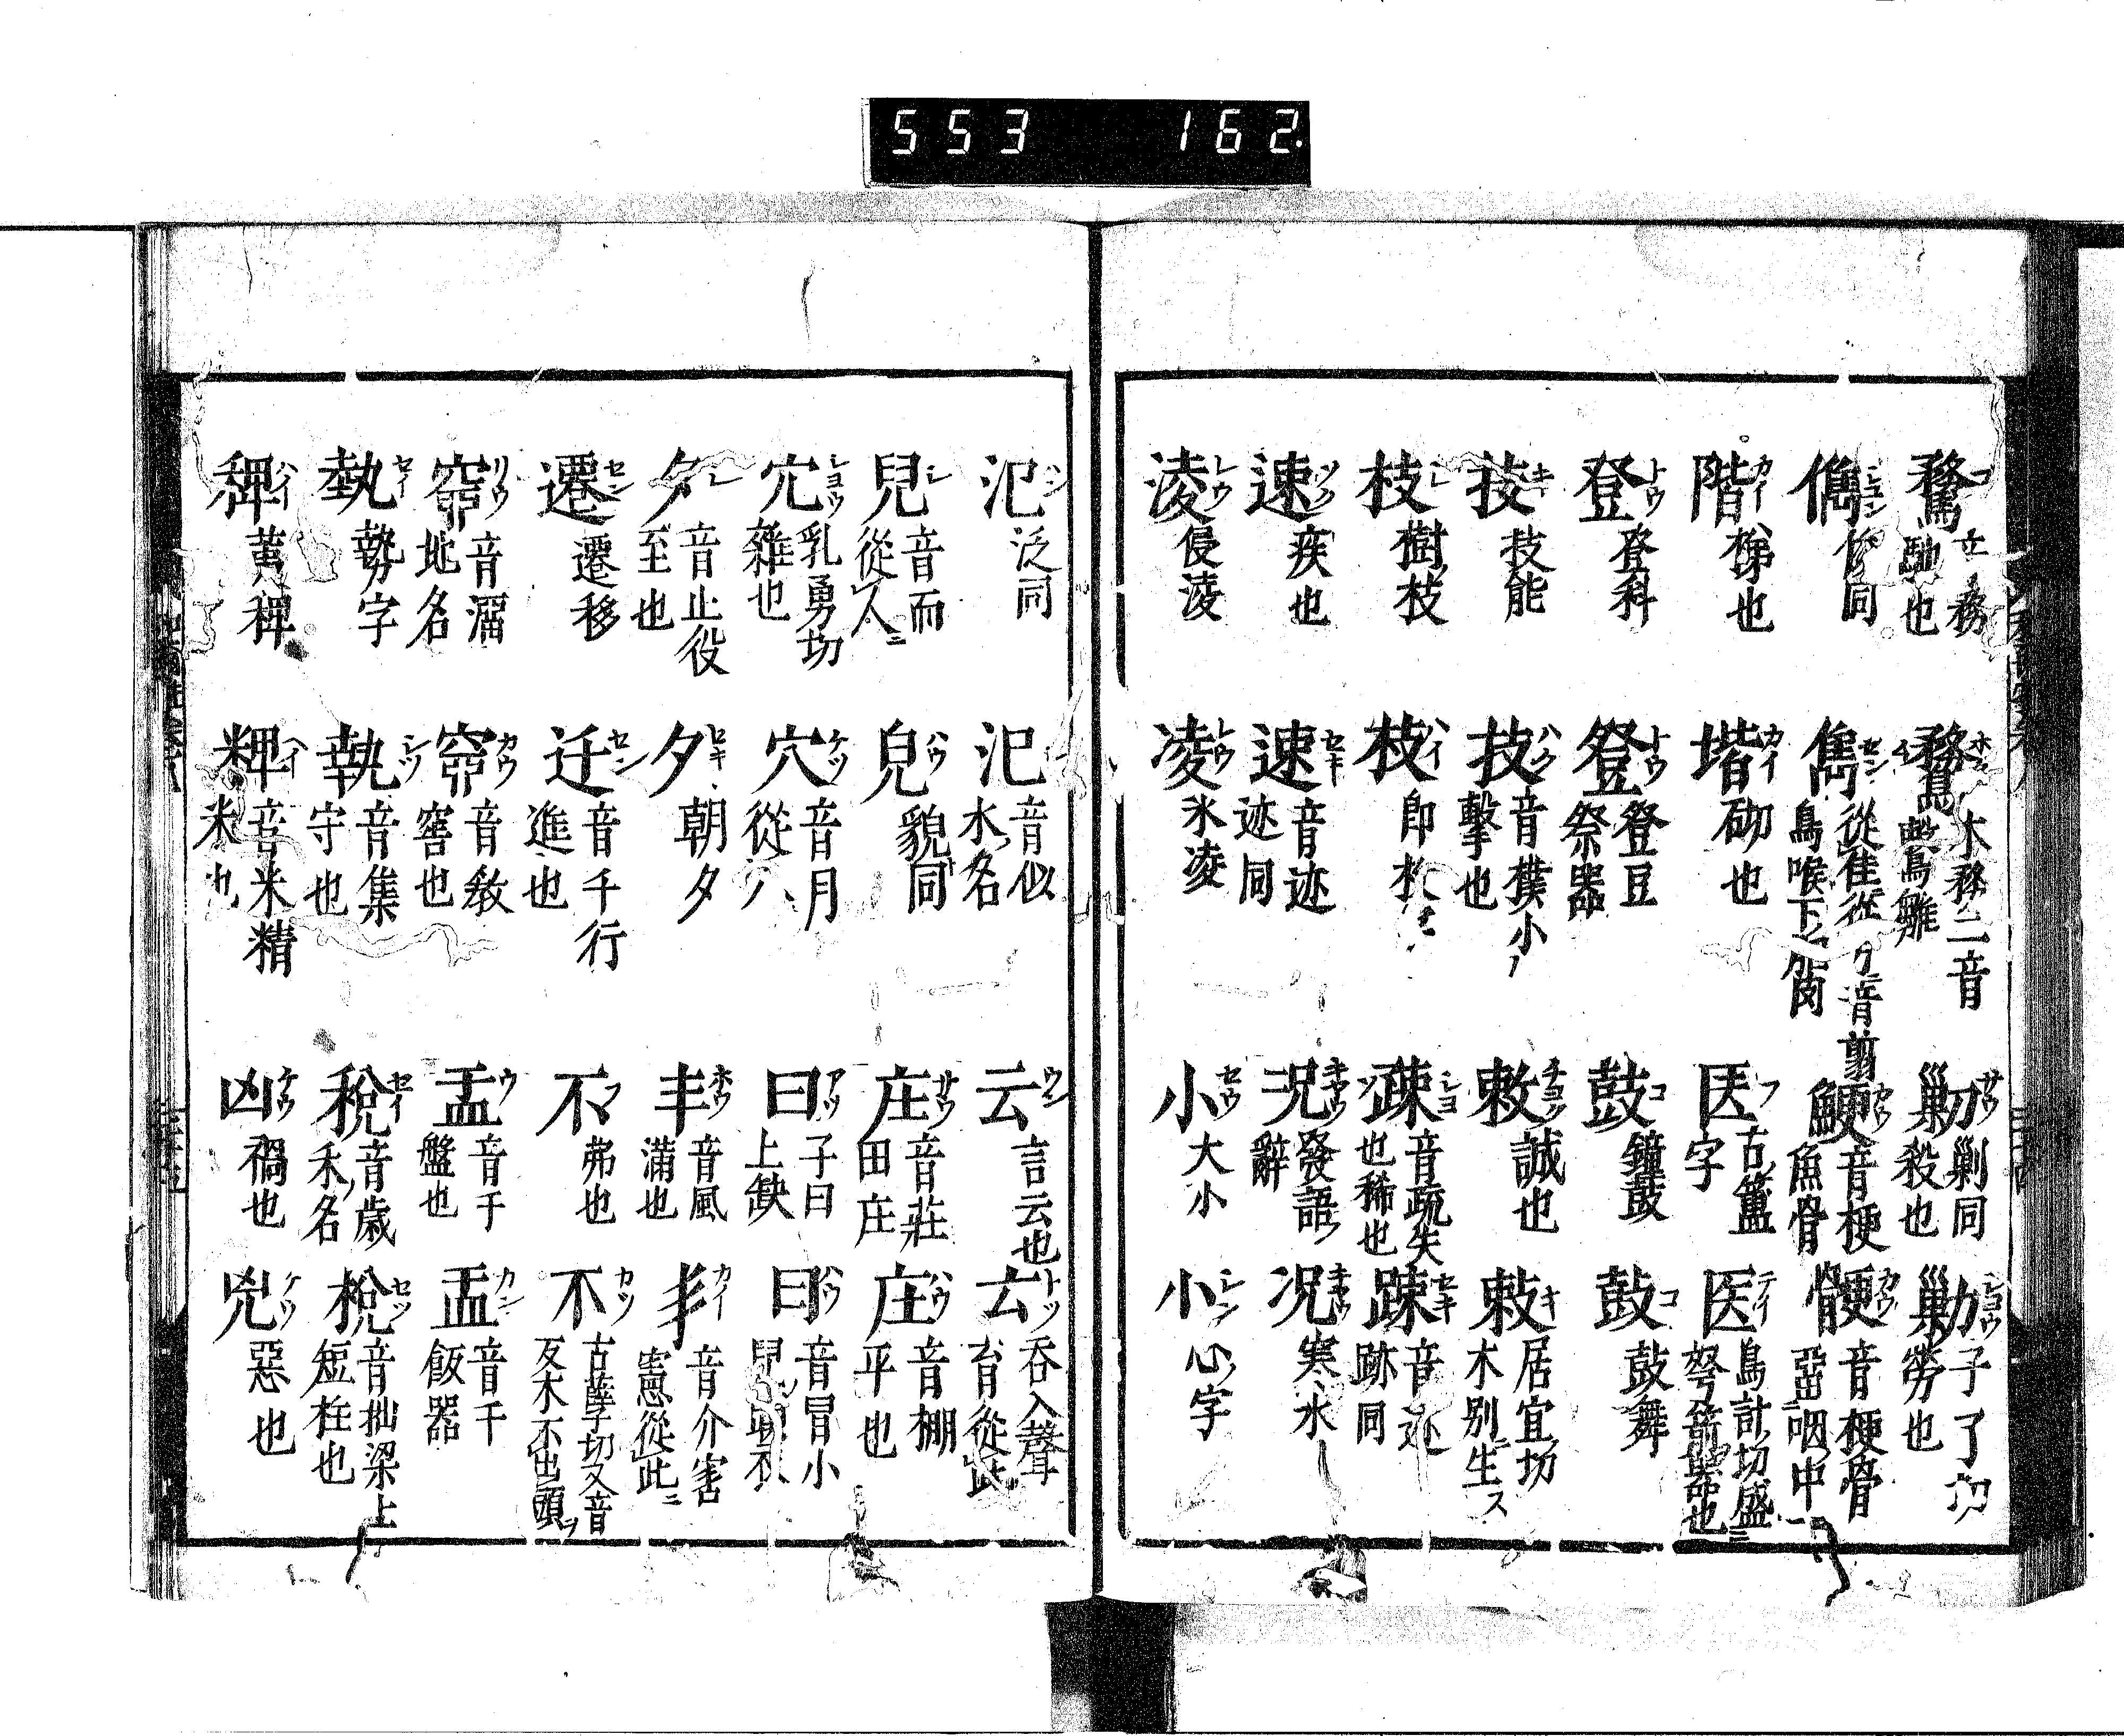 553 162
騖 コ 音務 馳也
鶩 ホク 木務二音 鳥 鳥雛
勦 サウ 剿同 殺也
勦 シヨウ 子了切 勞也
儁 シユン 俊同
雋 セン 從隹從 音翦 鳥喉下肉
鯁 カウ 音梗 魚骨
骾 カウ 音梗骨𠱥咽中
階 カイ 梯也
堦 カイ 砌也
医 フ 古簠字
医 エイ 烏計切盛弩箭器也
登 トウ 登科
豋 トウ 登豆祭器
鼓 コ 鐘鼓
鼔 コ 鼓舞
技 キ 技能
技 ハク 音樸小擊也
敕 チヨク 誠也
敧 キ 居宜切 木別生
枝 シ 樹枝
枚 ハイ 即枚
疎 シヨ 音疏失也稀也
踈 セキ 音迹 跡同
速 ソク 疾也
速 セキ 音迹 迹同
况 キヤウ 發語辭
況 キヤウ 寒水
淩 レウ 侵淩
凌 レウ 氷凌
小 セウ 大小
小 シン 心字
氾 ハン 泛同
汜 音似 水名
云 ウン 言云也
𠫓 トツ 吞入聲 育從此
兒 シ 音而 從人
皃 ハウ 貌同
庄 サウ 音莊 田庄
庄 ハウ 音棚 平也
宂 シヨウ 乳勇切 雜也
穴 ケツ 音月 從八
曰 アツ 子曰 上缺
冃 ハウ 音冒小
夂 シ 音止 役至也
夕 セキ 朝夕
丰 ホウ 音風 滿也
丯 カイ 音介 害憲從此
遷 セン 遷移
迁 セン 音千 行進也
不 フ 弗也
不 カツ 古孽切又音 友木不出頭
窌 リウ 音溜 地名
窌 カウ 音教 窖也
盂 ウ 音于 盤也
盂 カン 音干 飯器
埶 セイ 勢字
執 シツ 音集 守也
税 セイ 音歲 禾名
梲 セツ 音拙梁上短柱也
稗 ハイ 黃稗
粺 ハイ 音米精米也
凶 ケウ 禍也
兇 ケウ 惡也